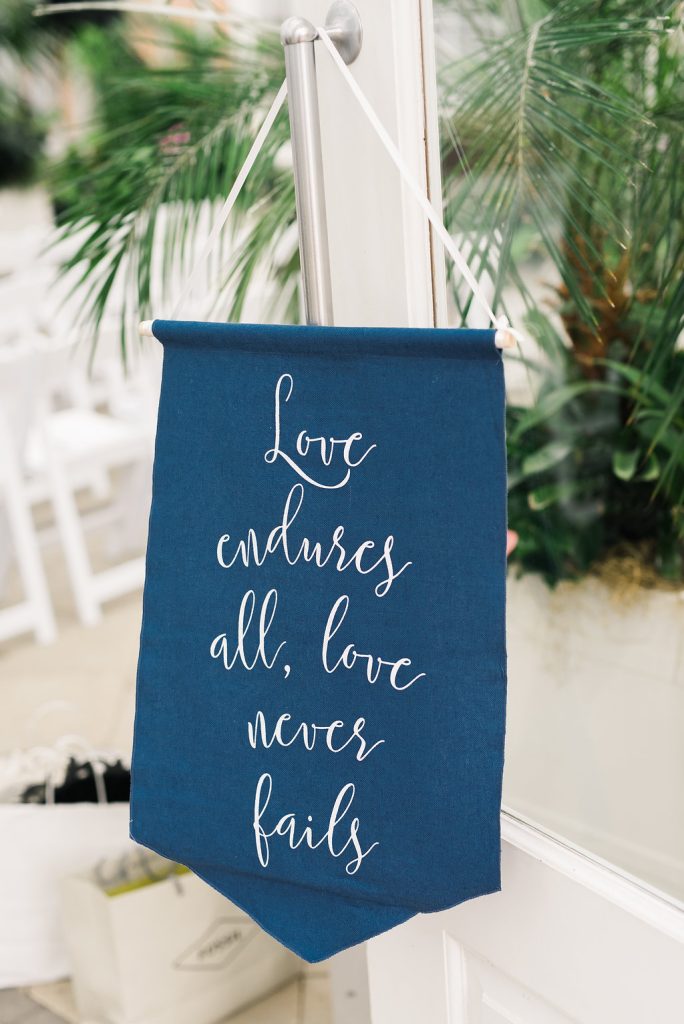 Love
endures
all, love
never
fails